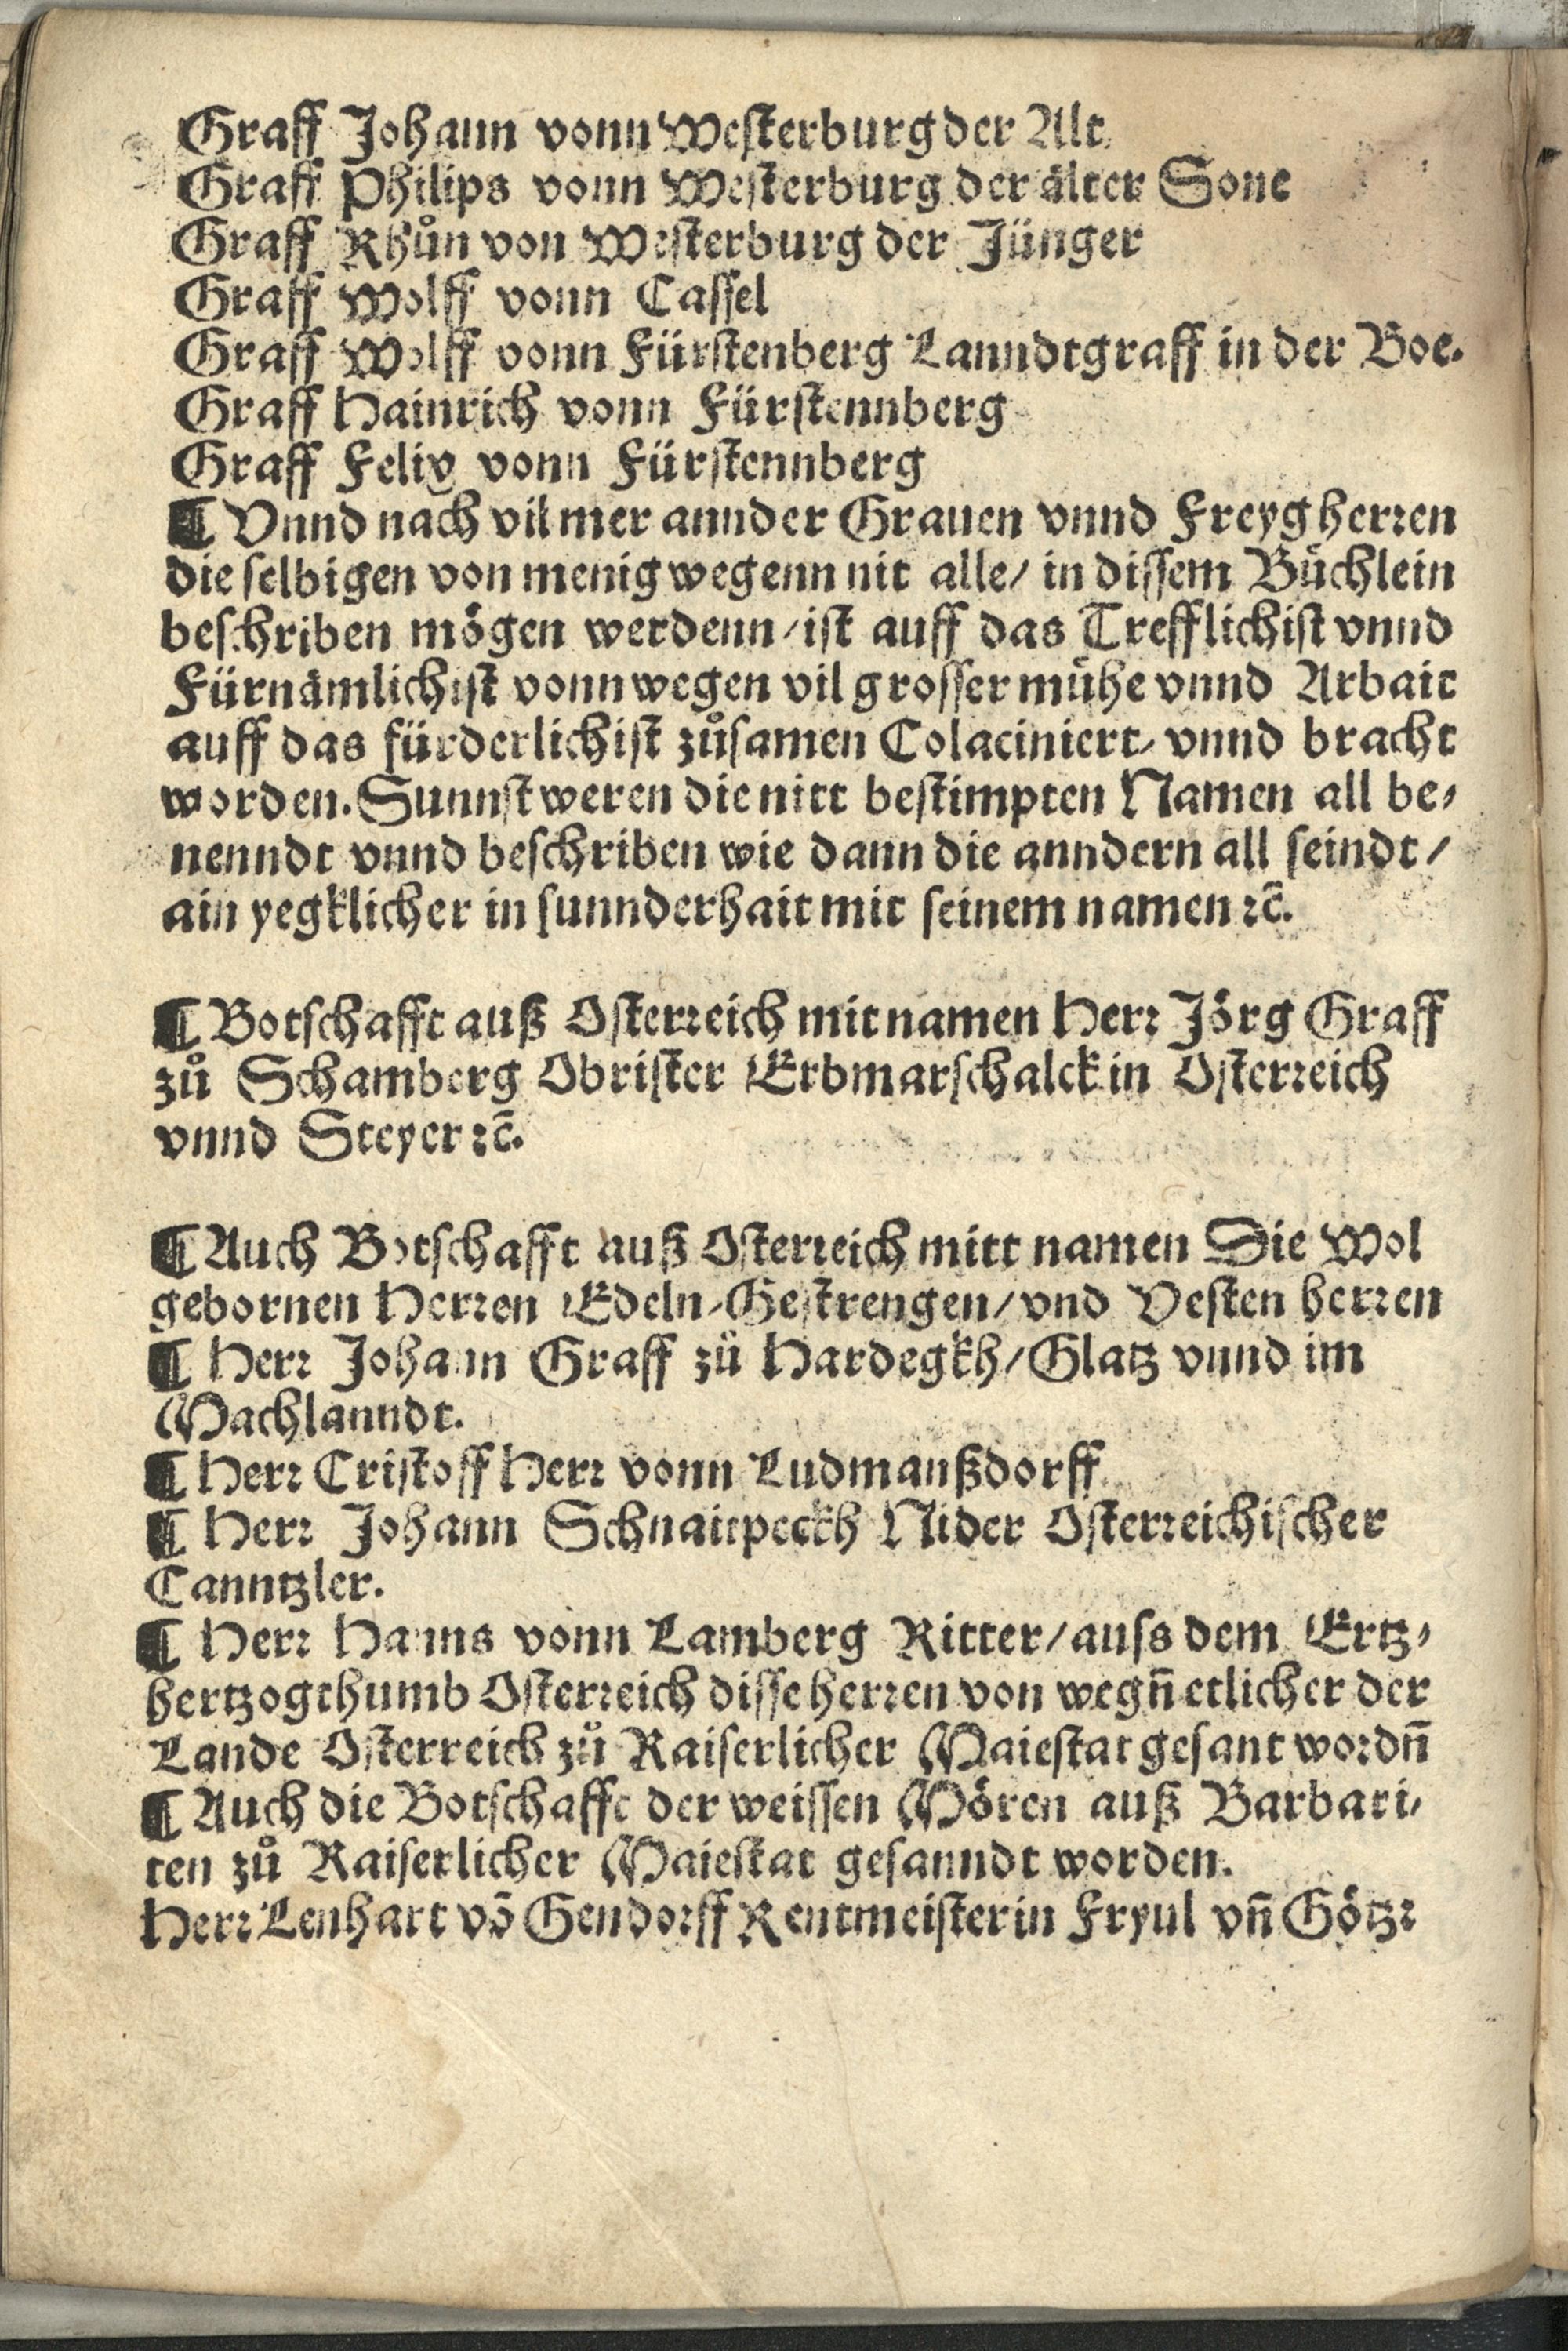 Graff Johann vonn Westerburg der Alt
Graff Philips vonn Westerburg der älter Sone
Graff Rhůn von Westerburg der Jünger
Graff Wolff vonn Cassel
Graff Wolff vonn Fürstenberg Lanndtgraff in der Boe.
Graff Hainrich vonn Fürstennberg
Graff Felix vonn Fürstennberg
¶ Vnnd nach vil mer annder Grauen vnnd Freygherren
die selbigen von menig wegenn nit alle/ in dissem Büchlein
beschriben mögen werdenn/ ist auff das Trefflichist vnnd
Fürnämlichist vonn wegen vil grosser mühe vnnd Arbait
auff das fürderlichist zůsamen Colaciniert/ vnnd bracht
worden. Sunnst weren die nitt bestimpten Namen all be⸗
nenndt vnnd beschriben wie dann die anndern all seindt/
ain yegklicher in sunnderhait mit seinem namen ꝛc̄.
¶ Botschafft auß Osterreich mit namen Herr Jörg Graff
zů Schamberg Obrister Erbmarschalck in Osterreich
vnnd Steyer ꝛc̄.
¶ Auch Botschafft auß Osterreich mitt namen Die Wol
gebornen Herren Edeln/ Gestrengen/ vnd Vesten herren
¶ Herr Johann Graff zů Hardegkh/ Glatz vnnd im
Machlanndt.
¶ Herr Cristoff Herr vonn Ludmanßdorff
¶ Herr Johann Schnaitpeckh Nider Osterreichischer
Canntzler.
¶ Herr Hanns vonn Lamberg Ritter/ auss dem Ertz⸗
hertzogthumb Osterreich disse herren von wegn̄ etlicher der
Lande Osterreich zů Kaiserlicher Maiestat gesant wordn̄
¶ Auch die Botschafft der weissen Mören auß Barbari⸗
ten zů Kaiserlicher Maiestat gesanndt worden.
Herr Lenhart vō Gendorff Rentmeister in Fryul vn̄ Götzꝛ